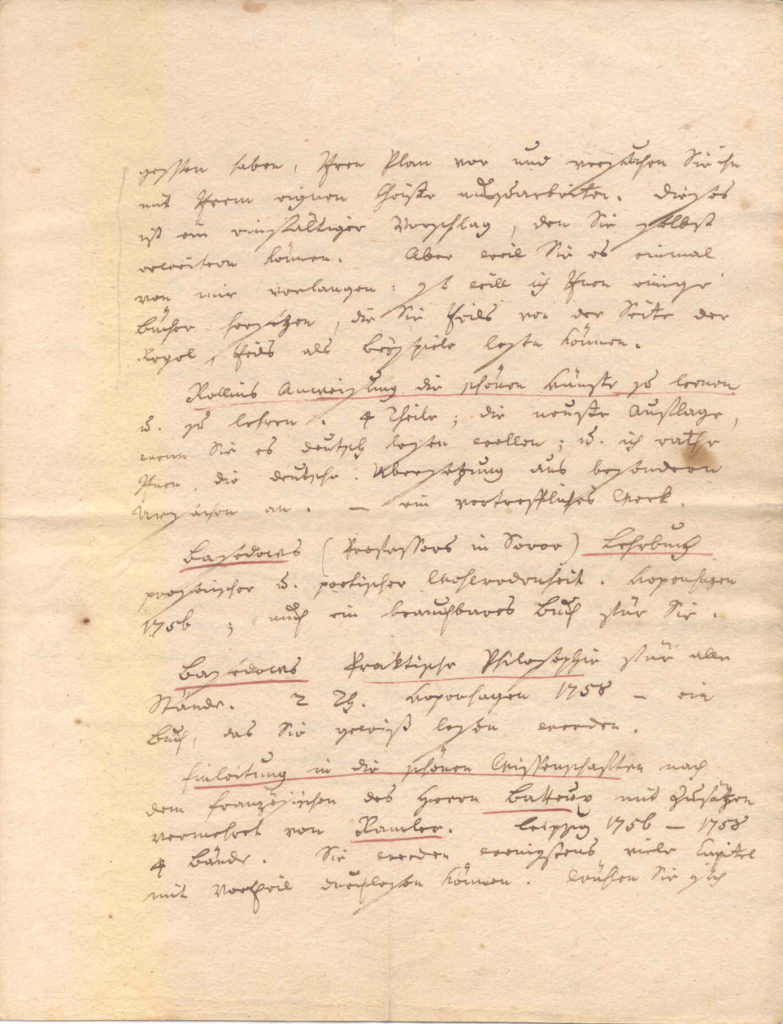 gessen haben, Ihren Plan vor und versuchen Sie ihn
mit Ihrem eignen Geiste auszuarbeiten. Dieses
ist ein einfältiger Vorschlag, den Sie selbst
erweitern können. Aber weil Sie es einmal
von mir verlangen: so will ich Ihnen einige
Bücher hersetzen, die Sie theils von der Seite der
Regel, theils als Beyspiele lesen können.
Rollins Anweisung die schönen Künste zu lernen
u. zu lehren. 4 Theile; die neuste Auflage,
wenn Sie es deutsch lesen wollen; u. ich rathe
Ihnen die deutsche Übersetzung aus besondern
Ursachen an. — ein vortreffliches Werk.
Basedows (Professors in Soroe) Lehrbuch
prosaischer u. poetischer Wohlredenheit. Kopenhagen
1756; auch ein brauchbares Buch für Sie.
Basedows Praktische Philosophie für alle
Stände. 2 Th. Kopenhagen 1758 — ein
Buch, das Sie gewiß lesen werden.
Einleitung in die schönen Wissenschaften nach
dem französischen des Herrn Batteux mit Zusätzen
vermehret von Ramler. Leipzig 1756 — 1758
4 Bände. Sie werden wenigstens viele Capitel
mit Vortheil durchlesen können. Wählen Sie sich